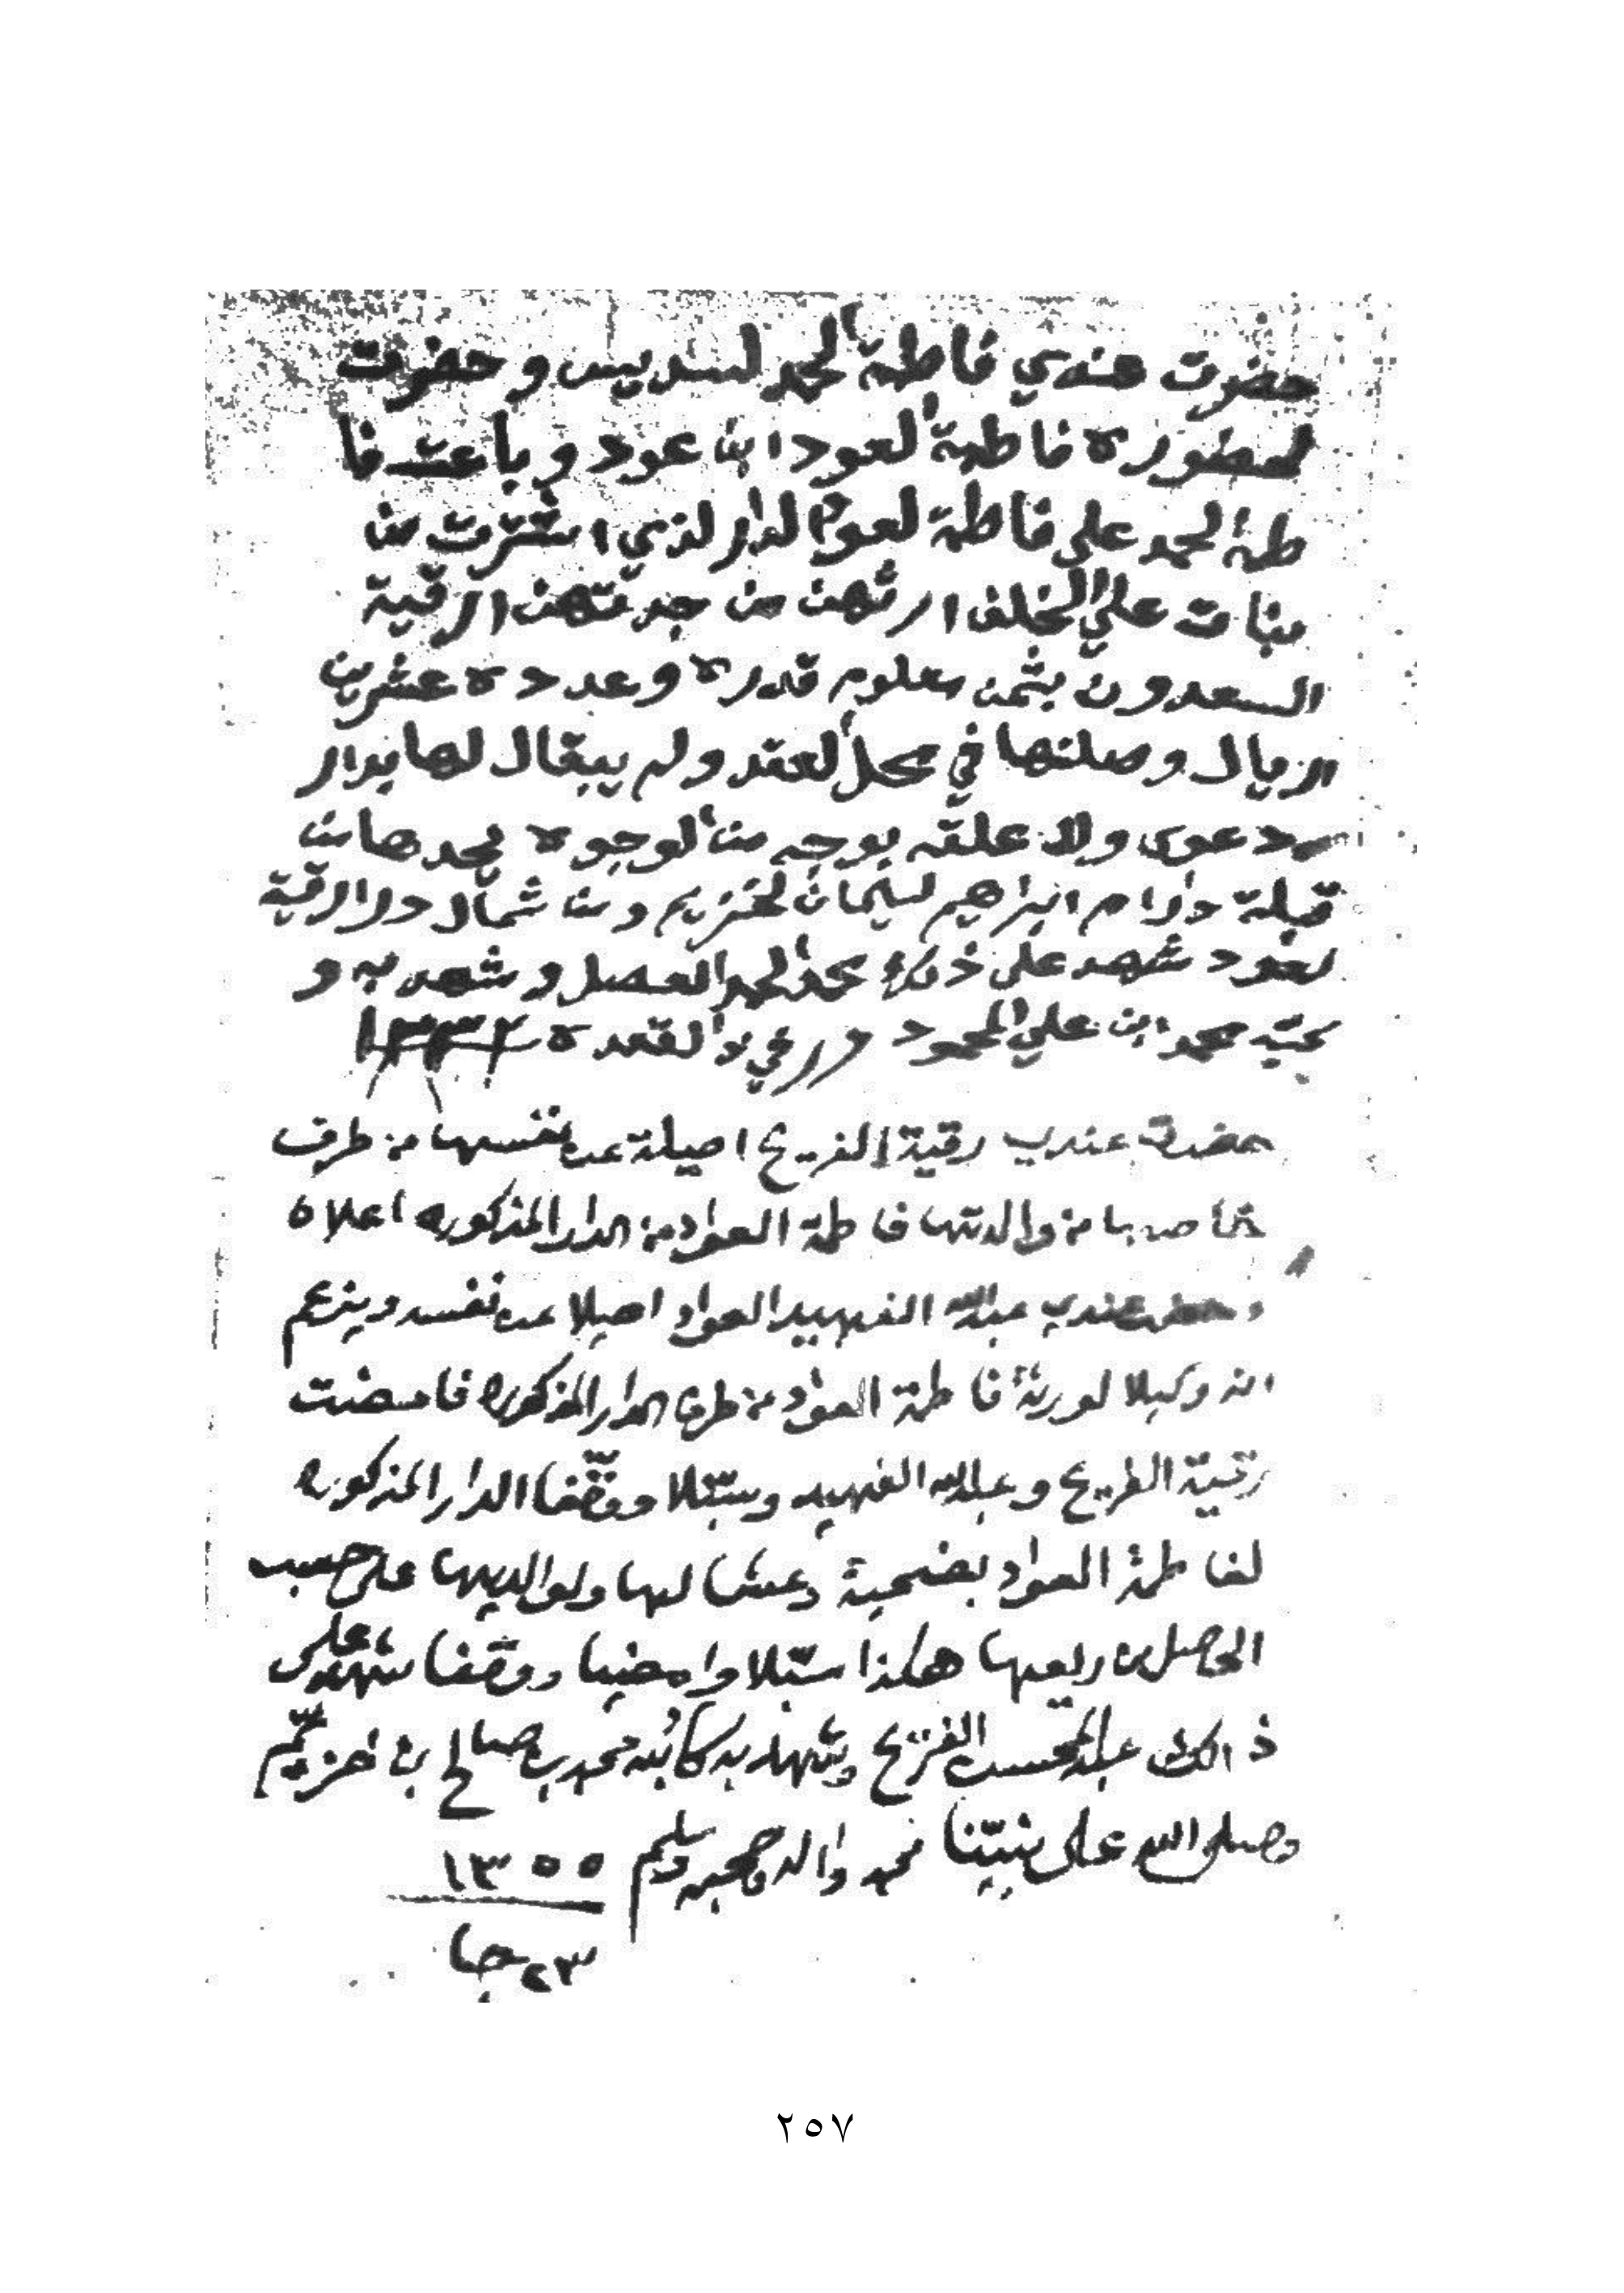 حضرت عندي فاطمة الحمد لسديس و حضرت
لحضوره فاطمة العود ابن عود و باعت فا
طمة لحمد على فاطمة لعود الدار لذي اشترت من
بنات علي الخلف ارثهن من جدتهن الرقية
السعدون بثمن معلوم قدره وعدده عشرين
اريال وصلنها في محل العقد ولم يبقال لها بدار
دعوى ولا علقه بوجه من الوجوه يحدها من
قبلة دارام ابراهيم لسليمان لخزيم ومن شمال دار الرقية
لعود شهد على ذلك محمد الحمد العصل و شهد به و
محمد ابن علي المحمود حرر في ذا القعده ١٣٣٢
حضرت عندي رقية الفريح اصيلة عن نفسها من طرف
ما صابها من والدتها فاطمة العواد من الدار المذكوره اعلاه
وحضر عندي عبدالله الفهيد العواد اصيلا عن نفسه ويزعم
انه وكيلا لورثة فاطمة العواد من طرف الدار المذكوره فامضت
رقية الفريح وعبدالله الفهيد وسبّلا ووقّفا الدار المذكوره
لفاطمة العواد بضحية وعشا لها ولوالديها على حسب
الحاصل من ريعها هكذا سبّلا وامضيا ووقفا شهد على
ذالك عبدالمحسن الفريح وشهد به كاتبه محمد بن صالح بن خزيّم
وصلى الله على نبيّنا محمد واله وصحبه وسلم ١٣٥٥
٢٣ جا
٢٥٧